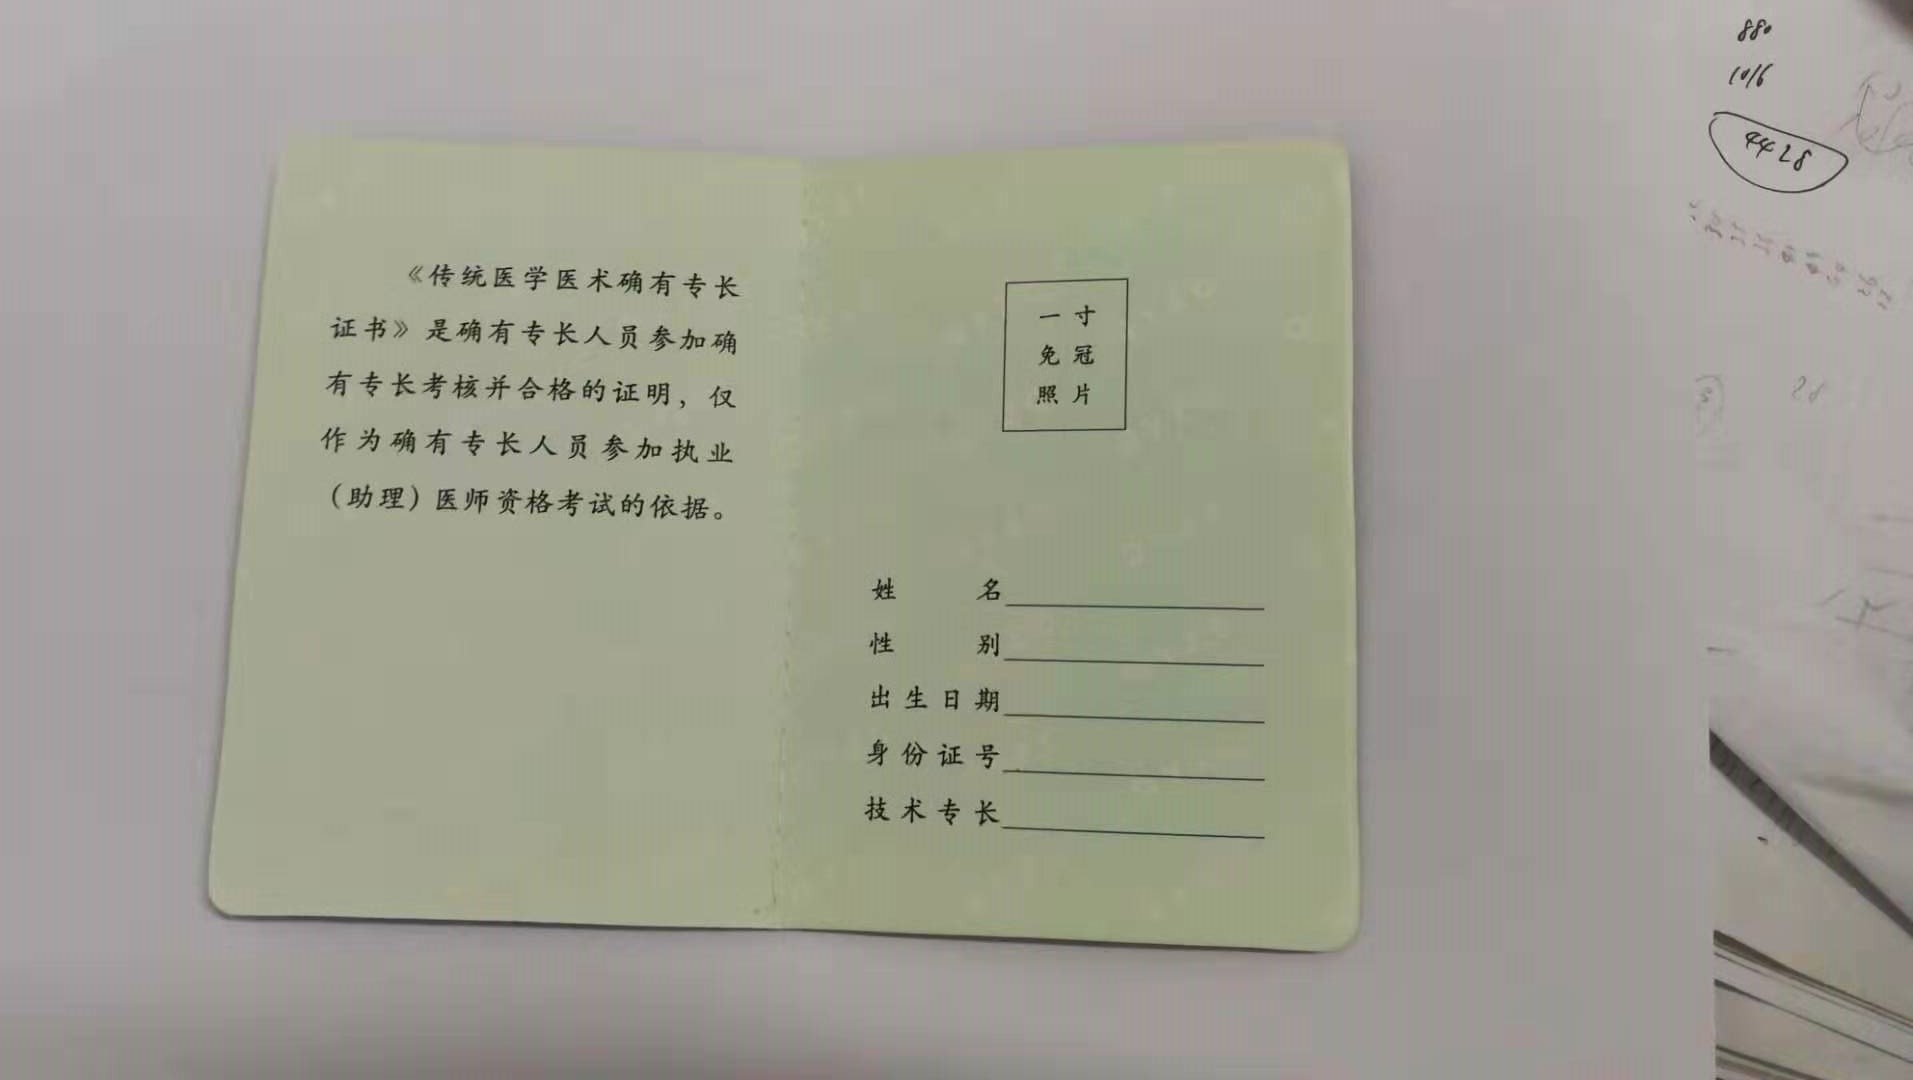 《传统医学医术确有专长
证书》是确有专长人员参加确
有专长考核并合格的证明，仅
作为确有专长人员参加执业
（助理）医师资格考试的依据。
一寸
免冠
照片
姓名
性别
出生日期
身份证号
技术专长
880
1016
4428
28